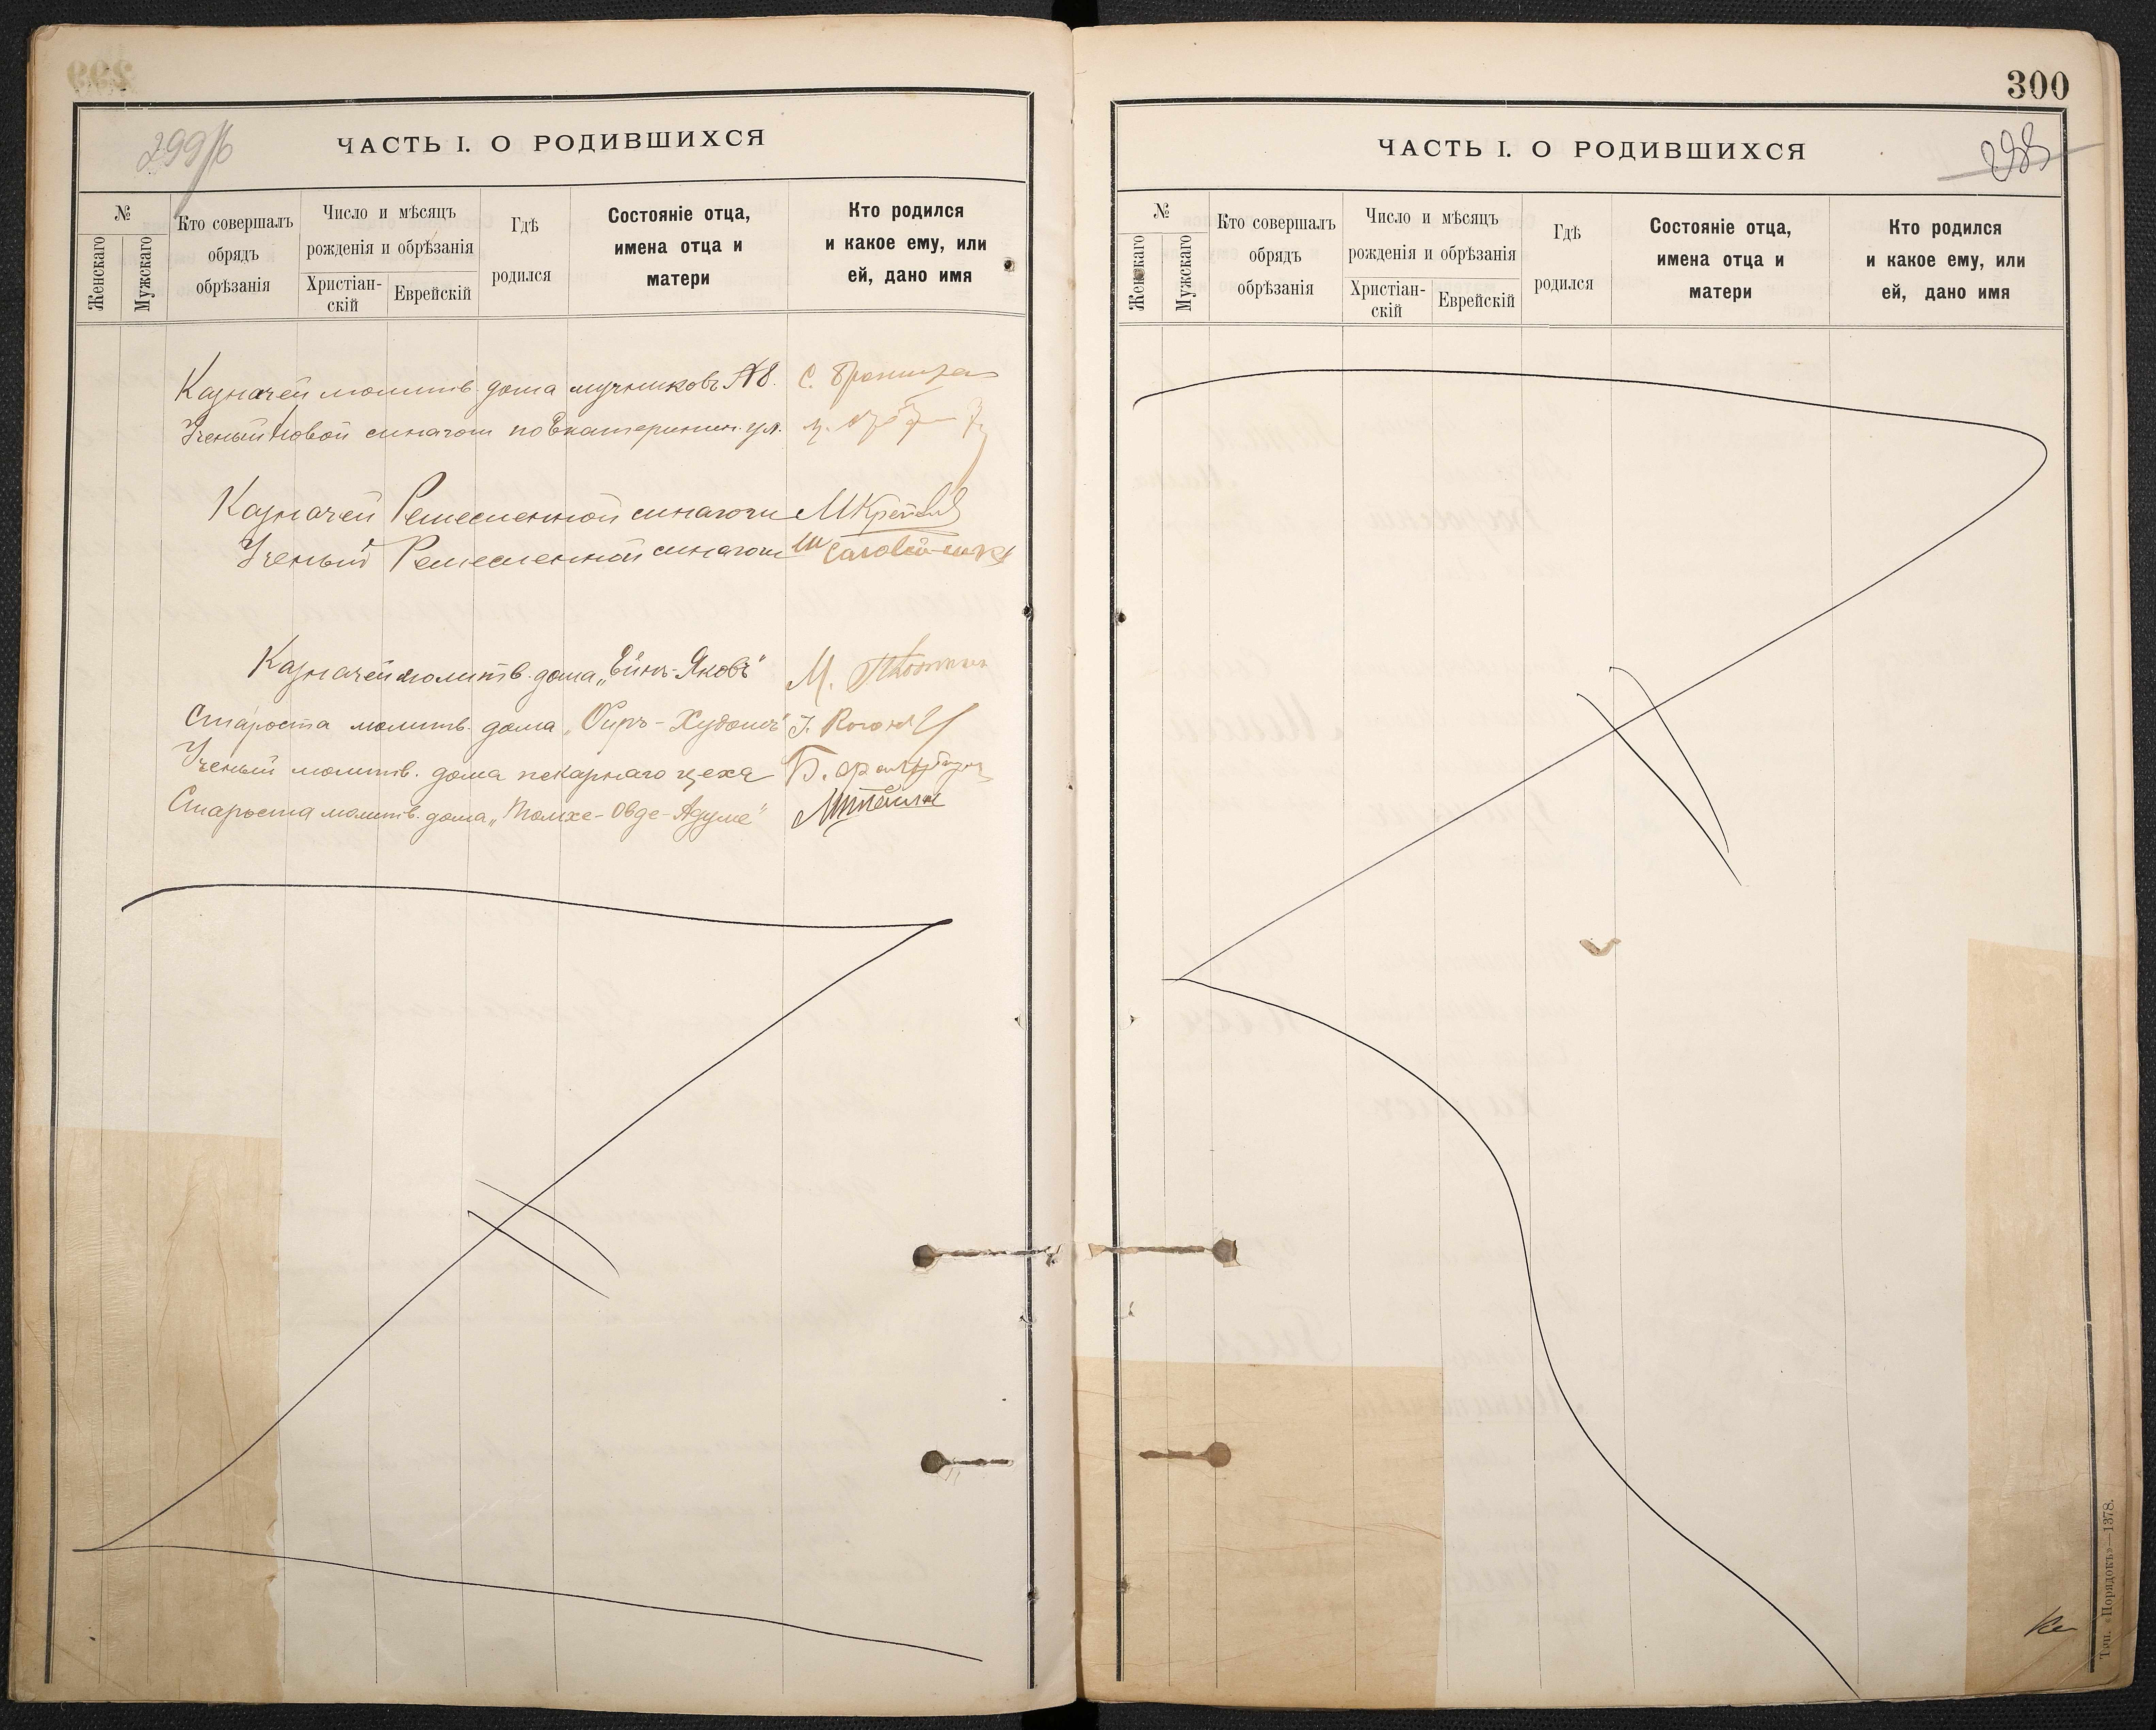 299/б
ЧАСТЬ I. О РОДИВШИХСЯ
№
Женскаго
Мужскаго
Кто совершалъ
обрядъ
обрѣзанія
Число и мѣсяцъ
рожденія и обрѣзанія
Христіан-
скій
Еврейскій
Гдѣ
родился
Состояніе отца,
имена отца и
матери
Кто родился
и какое ему, или
ей, дано имя
Казначей молитв. дома мучниковъ С.
Ученый Новой синагоги по Екатеринин. ул.
Казначей Ремесленной синагоги
Ученый Ремесленной синагоги
Казначей молитв. дома „Эйнъ-Яковъ" М.
Староста молитв. дома „Оиръ-Худошъ" I.
Ученый молитв. дома пекарнаго цеха Б.
Староста молитв. дома „Томхе-Овде-Адуме"
300
298
ЧАСТЬ I. О РОДИВШИХСЯ
№
Женскаго
Мужскаго
Кто совершалъ
обрядъ
обрѣзанія
Число и мѣсяцъ
рожденія и обрѣзанія
Христіан-
скій
Еврейскій
Гдѣ
родился
Состояніе отца,
имена отца и
матери
Кто родился
и какое ему, или
ей, дано имя
Тип. «Порядокъ»—1378.